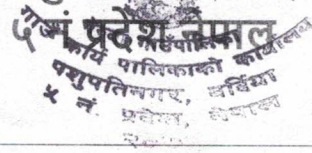 ५ नं प्रदेश नेपाल
गाउँ कार्य पालिकाको कार्यालय
पशुपतिनगर, बर्दिया
५ नं. प्रदेश, नेपाल